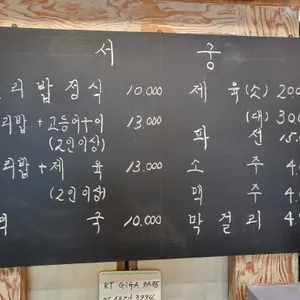 서 궁
리밥정식 10,000
리밥+고등어구이 13,000
(2인이상)
리밥+제 육 13,000
(2인이상)
국 10,000
제 육(소) 20.0
(대) 300
파 전 15.0
소 주 4.0
맥 주 4.
막 걸 리 4.
KT GiGA